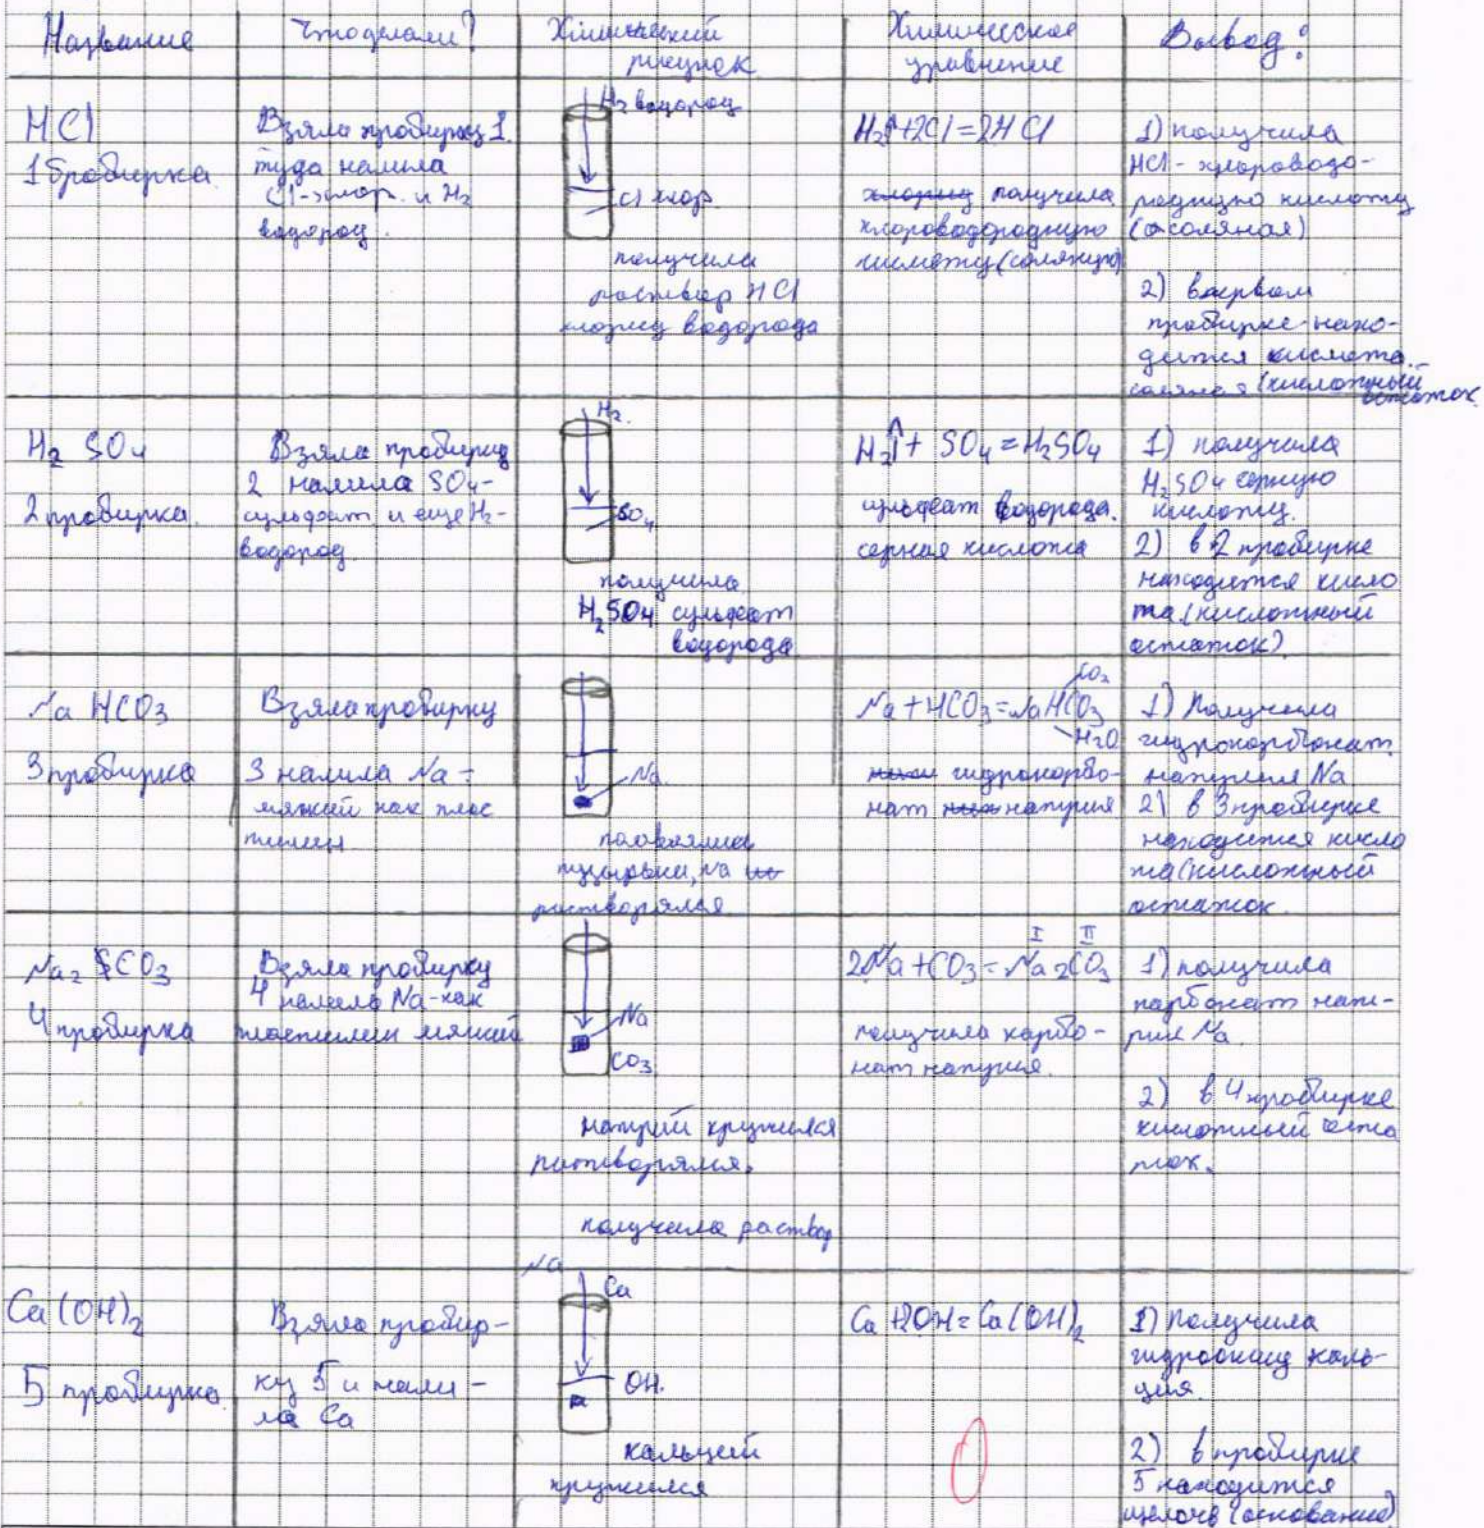 Название
Что делали?
Химический
рисунок
Химическое
уравнение
Вывод:
HCl
1 пробирка
Взяла пробирку 1.
туда налила
Cl-хлор и H2
водород.
H2 водород
Cl хлор
получила
раствор HCl
хлорид водорода
H2↑+2Cl=2HCl
хлорид получила
хлороводородную
кислоту (соляную)
1) получила
HCl - хлороводо-
родную кислоту
(соляная)
2) в первом
пробирке нахо-
дится кислота
соляная (кислотный
остаток
H2 SO4
2 пробирка.
Взяла пробирку
2 налила SO4-
сульфат и еще H2-
водород.
H2.
SO4
получила
H2SO4 сульфат
водорода
H2↑+ SO4=H2SO4
сульфат водорода.
серная кислота
1) получила
H2SO4 серную
кислоту.
2) в 2 пробирке
находится кисло
та (кислотный
остаток)
Na HCO3
3 пробирка
Взяла пробирку
3 налила Na -
мягкий как плас
тилин
Na
появились
пузырьки, Na
растворялся
CO2
Na+HCO3=NaHCO3
H2O
гидрокарбо-
нат натрия
1) Получила
гидрокарбонат
натрия Na
2) в 3 пробирке
находится кисло
та (кислотный
остаток.
Na2 CO3
4 пробирка
Взяла пробирку
4 налила Na-как
пластилин мягкий
Na
CO3
натрий кружился
растворялся.
получила раствор
I II
2Na+CO3=Na2CO3
получила карбо-
нат натрия.
1) получила
карбонат нат-
рия Na.
2) в 4 пробирке
кислотный оста
ток.
Ca(OH)2
5 пробирка
Взяла пробир-
ку 5 и нали-
ла Ca
Na
Ca
OH.
кальций
кружился
Ca+2OH=Ca(OH)2
1) Получила
гидроокид каль-
ция.
2) в пробирке
5 находится
щелочь (основание)